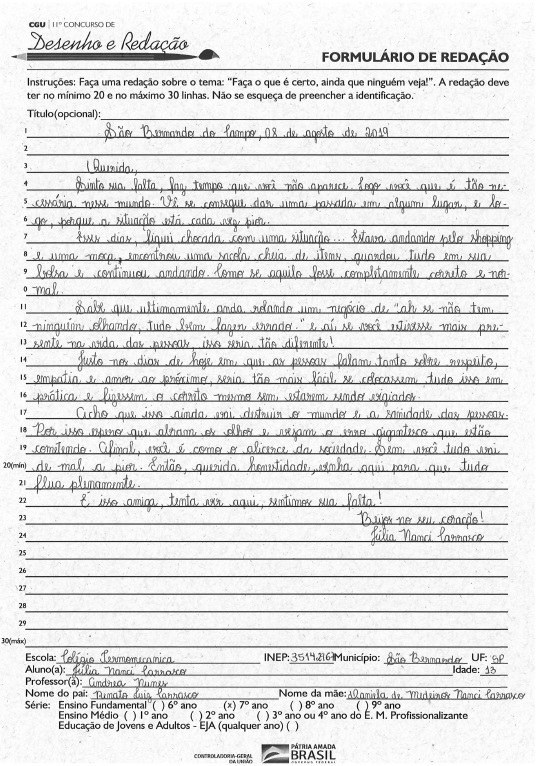 CGU 11º CONCURSO DE
Desenho e Redação
FORMULÁRIO DE REDAÇÃO
Instruções: Faça uma redação sobre o tema: "Faça o que é certo, ainda que ninguém veja!". A redação deve
ter no mínimo 20 e no máximo 30 linhas. Não se esqueça de preencher a identificação.
Título(opcional):
1 São Bernardo do Campo, 08 de agosto de 2019
2
3 Querida,
4 Sinto sua falta, faz tempo que você não aparece. Logo você que é tão ne-
5 cessária nesse mundo. Vê se consegue dar uma passada em algum lugar, e lo-
6 go, porque a situação está cada vez pior.
7 Esses dias, fiquei chocada com uma situação... Estava andando pelo shopping
8 e uma moça, encontrou uma sacola cheia de itens, guardou tudo em sua
9 bolsa e continuou andando. Como se aquilo fosse completamente correto e nor-
0 mal.
11 Sabe que ultimamente anda rolando um negócio de "ah se não tem
12 ninguém olhando, tudo bem fazer errado." e aí se você estivesse mais pre-
13 sente na vida das pessoas, isso seria tão diferente!
14 Justo nos dias de hoje em que as pessoas falam tanto sobre respeito,
15 empatia e amor ao próximo, seria tão mais fácil se colocassem tudo isso em
16 prática e fizessem o correto mesmo sem estarem sendo vigiados.
17 Acho que isso ainda vai destruir o mundo e a sanidade das pessoas.
18 Por isso espero que abram os olhos e vejam o erro gigantesco que estão
19 cometendo. Afinal, você é como o alicerce da sociedade. Sem você tudo vai
20(min) de mal a pior. Então, querida honestidade, venha aqui para que tudo
21 flua plenamente.
22 E isso amiga, tenta vir aqui, sentimos sua falta!
23 Beijos no seu coração!
24 Júlia Nanci Carrasco
25
26
27
28
29
30(máx)
Escola: Colégio Termomecanica INEP: Município: São Bernardo UF: SP
Aluno(a): Júlia Nanci Carrasco Idade: 13
Professor(a): Andrea Nunes
Nome do pai: Renato Luiz Carrasco Nome da mãe: Daniela de Medeiros Nanci Carrasco
Série: Ensino Fundamental ( ) 6º ano (x) 7º ano ( ) 8º ano ( ) 9º ano
Ensino Médio ( ) 1º ano ( ) 2º ano ( ) 3º ano ou 4º ano do E. M. Profissionalizante
Educação de Jovens e Adultos - EJA (qualquer ano) ( )
CONTROLADORIA-GERAL
DA UNIÃO
PÁTRIA AMADA
BRASIL
GOVERNO FEDERAL